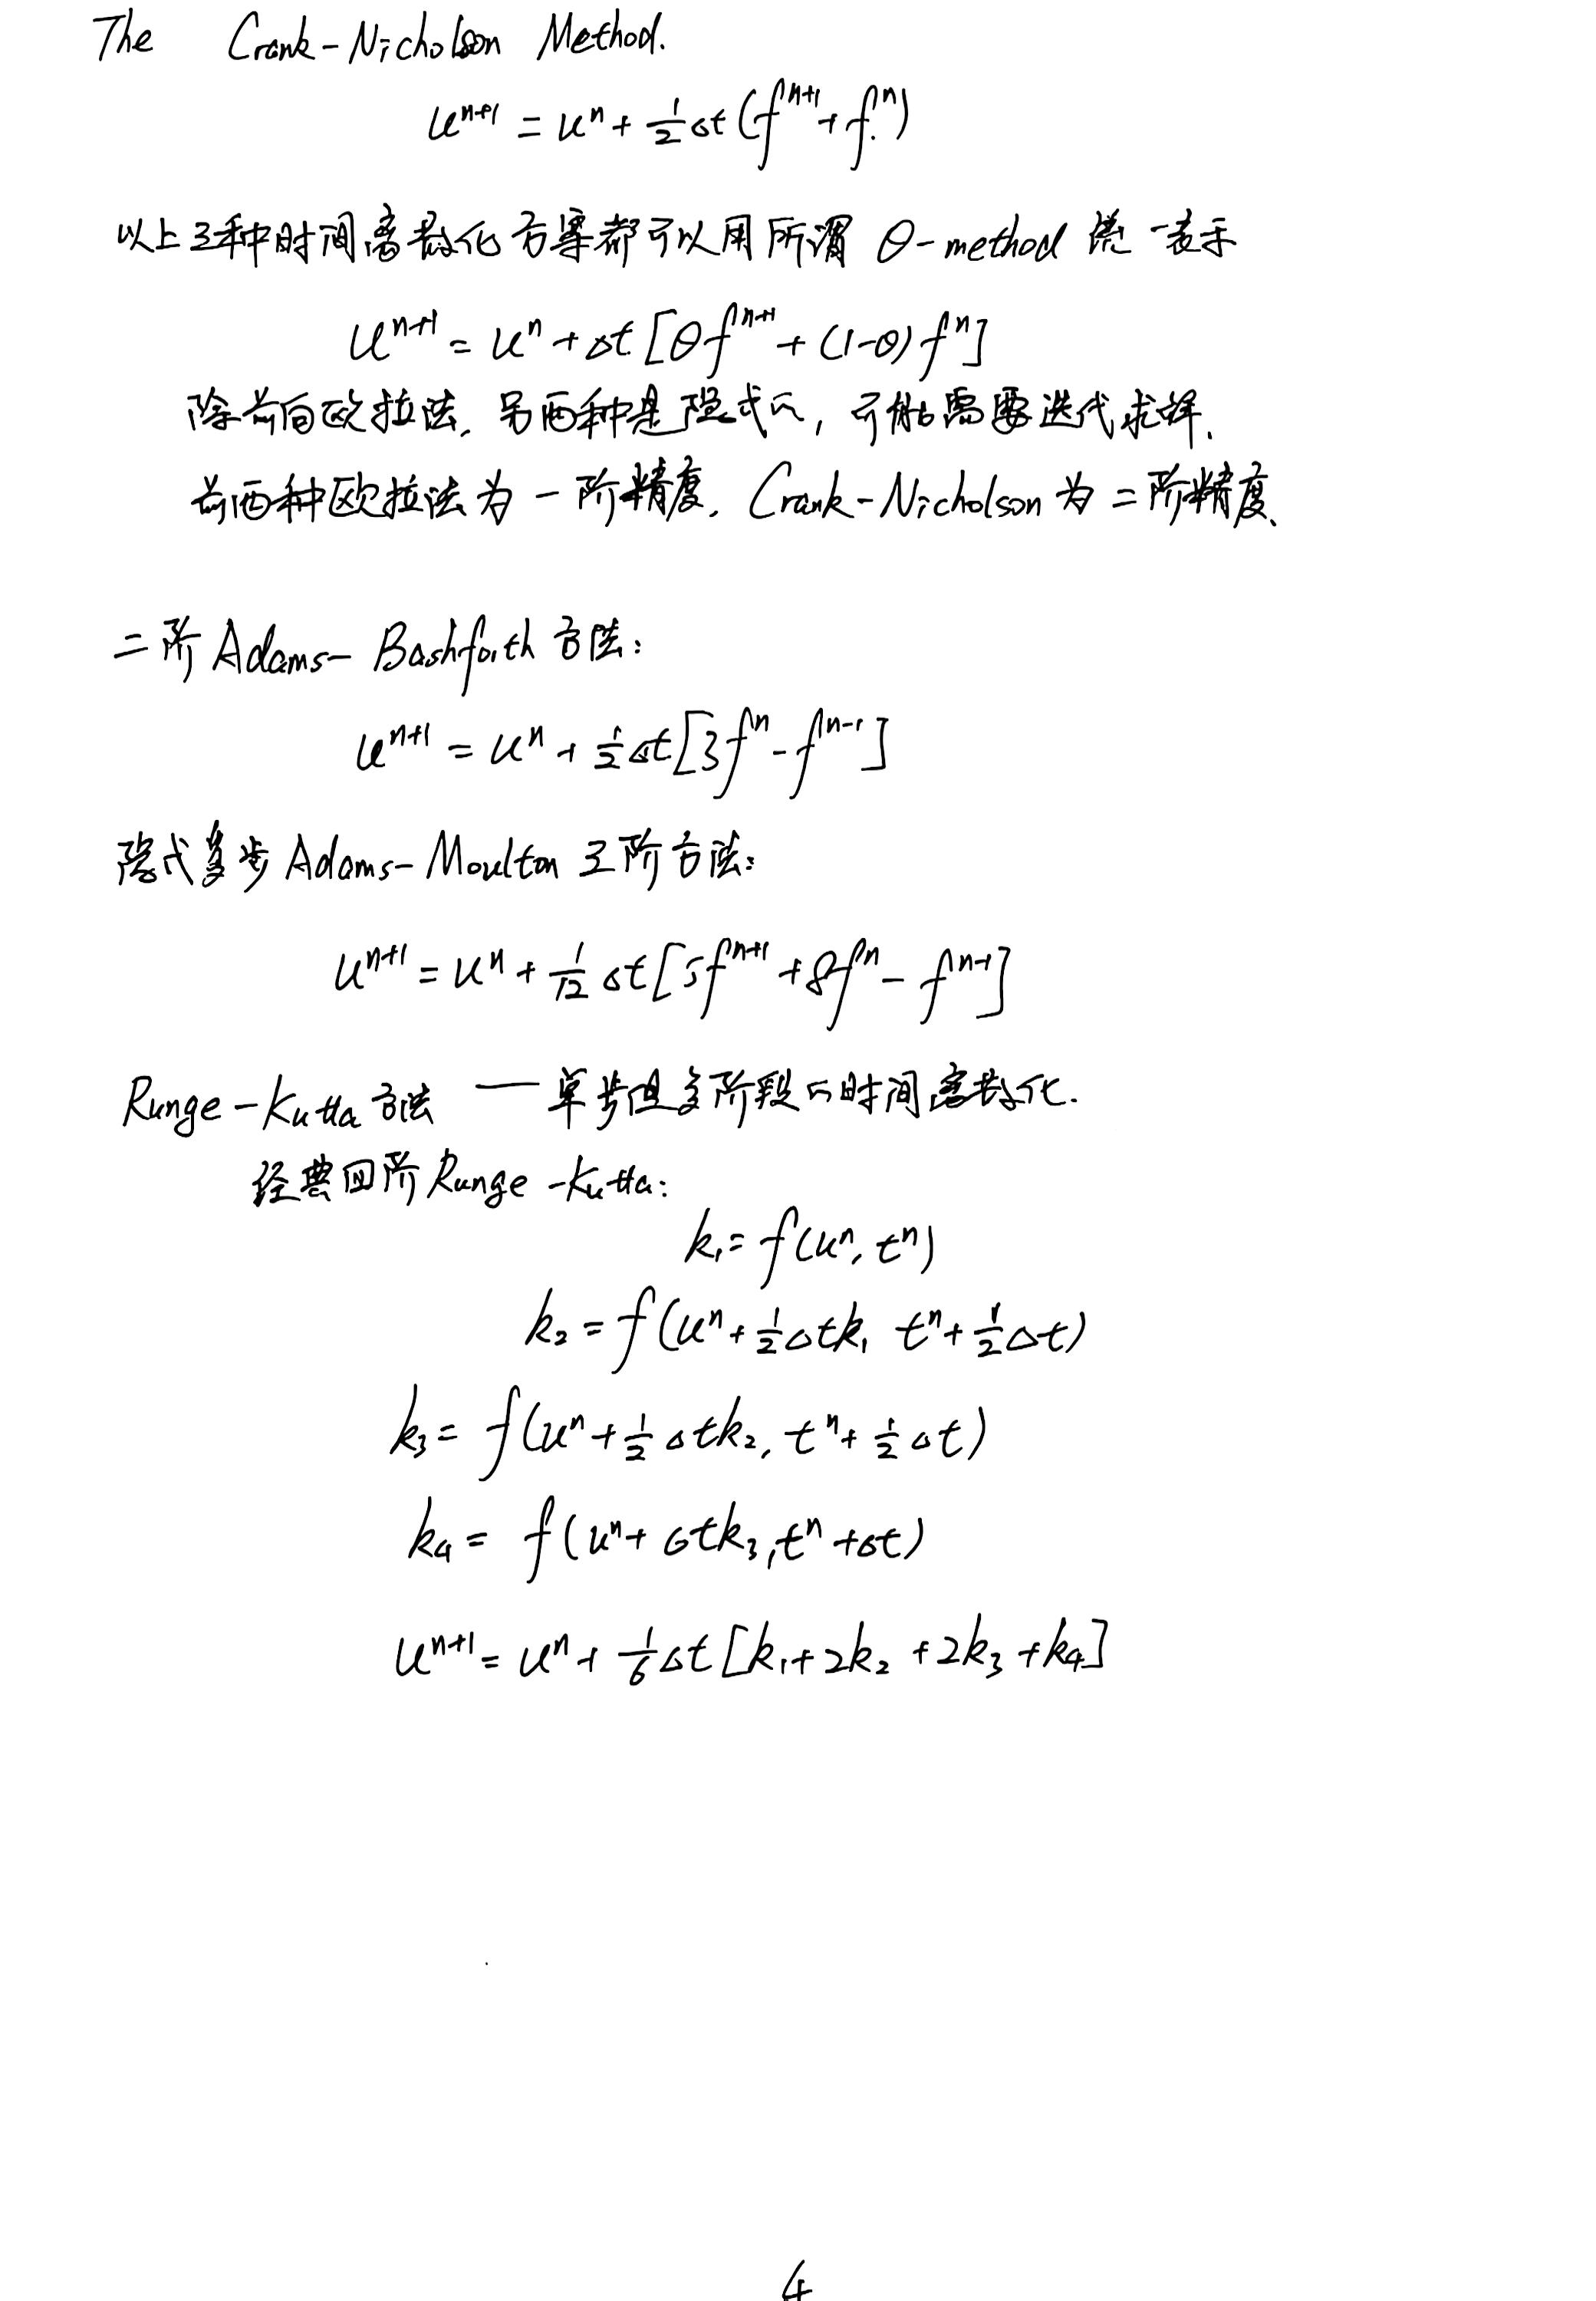 The Crank-Nicholson Method.
uⁿ⁺¹ = uⁿ + ½Δt(fⁿ⁺¹ + fⁿ)
以上三种时间离散化方案都可以用所谓 θ-method 统一表示
uⁿ⁺¹ = uⁿ + Δt[θfⁿ⁺¹ + (1-θ)fⁿ]
除前向欧拉法, 另两种是隐式的, 可能需要迭代求解.
前两种欧拉法为一阶精度. Crank-Nicholson 为二阶精度.
二阶 Adams-Bashforth 方法:
uⁿ⁺¹ = uⁿ + ½Δt[3fⁿ - fⁿ⁻¹]
隐式多步 Adams-Moulton 三阶方法:
uⁿ⁺¹ = uⁿ + 1/12 Δt[5fⁿ⁺¹ + 8fⁿ - fⁿ⁻¹]
Runge-Kutta 方法 — 单步但多阶段的时间离散化.
经典四阶 Runge-Kutta:
k₁ = f(uⁿ, tⁿ)
k₂ = f(uⁿ + ½Δtk₁ tⁿ + ½Δt)
k₃ = f(uⁿ + ½Δtk₂, tⁿ + ½Δt)
k₄ = f(uⁿ + Δtk₃, tⁿ + Δt)
uⁿ⁺¹ = uⁿ + 1/6 Δt[k₁ + 2k₂ + 2k₃ + k₄]
4